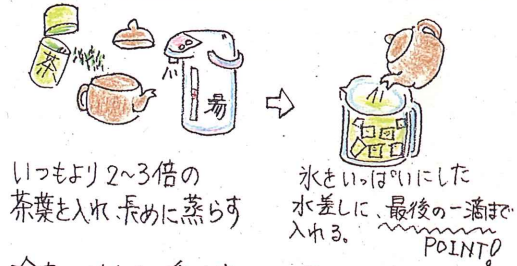 茶
湯
いつもより2~3倍の
茶葉を入れ、長めに蒸らす
氷をいっぱいにした
水差しに、最後の一滴まで
入れる。
POINT!